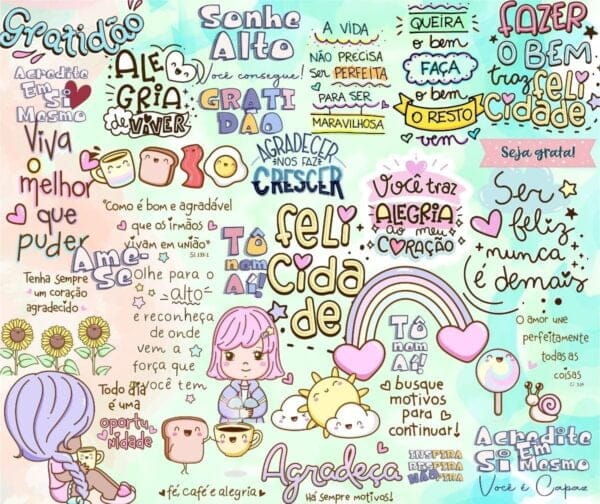 Gratidão
Acredite
Em
Si
Mesmo
ALE
GRIA
de VIVER
Sonhe
Alto
Você consegue!
GRATI
DÃO
A VIDA
NÃO PRECISA
Ser PERFEITA
PARA SER
MARAVILHOSA
QUEIRA
o bem
FAÇA
o bem
O RESTO
vem
FAZER
O BEM
traz
FELI
CIDADE
Seja grata!
Viva
o
melhor
que
puder
AGRADECER
NOS FAZ
CRESCER
Você traz
ALEGRIA
ao meu
CORAÇÃO
Ser
feliz
nunca
é demais
"Como é bom e agradável
que os irmãos
vivam em união"
Sl 133:1
Ame-
Se
Tô
nem
Aí!
feli
cida
de
Tenha sempre
um coração
agradecido
Olhe para o
alto
e reconheça
de onde
vem a
força que
você tem
Tô
nem
Aí!
busque
motivos
para
continuar!
O amor une
perfeitamente
todas as
coisas
Todo dia
é uma
oportu
nidade
fé, café e alegria
Agradeça
Há sempre motivos!
INSPIRA
RESPIRA
NÃO PIRA
Acredite
Em
Si Mesmo
Você é Capaz